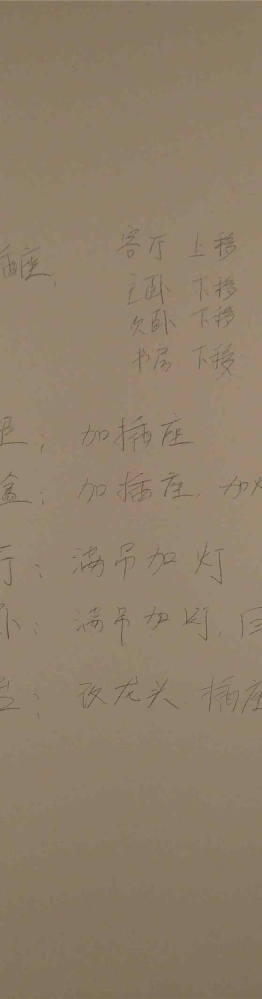 插座,
客厅 上移
主卧 下移
次卧 下移
书房 下移
: 加插座
盒: 加插座, 加
厅: 满吊加灯
卧: 满吊加灯,
: 改龙头 插座